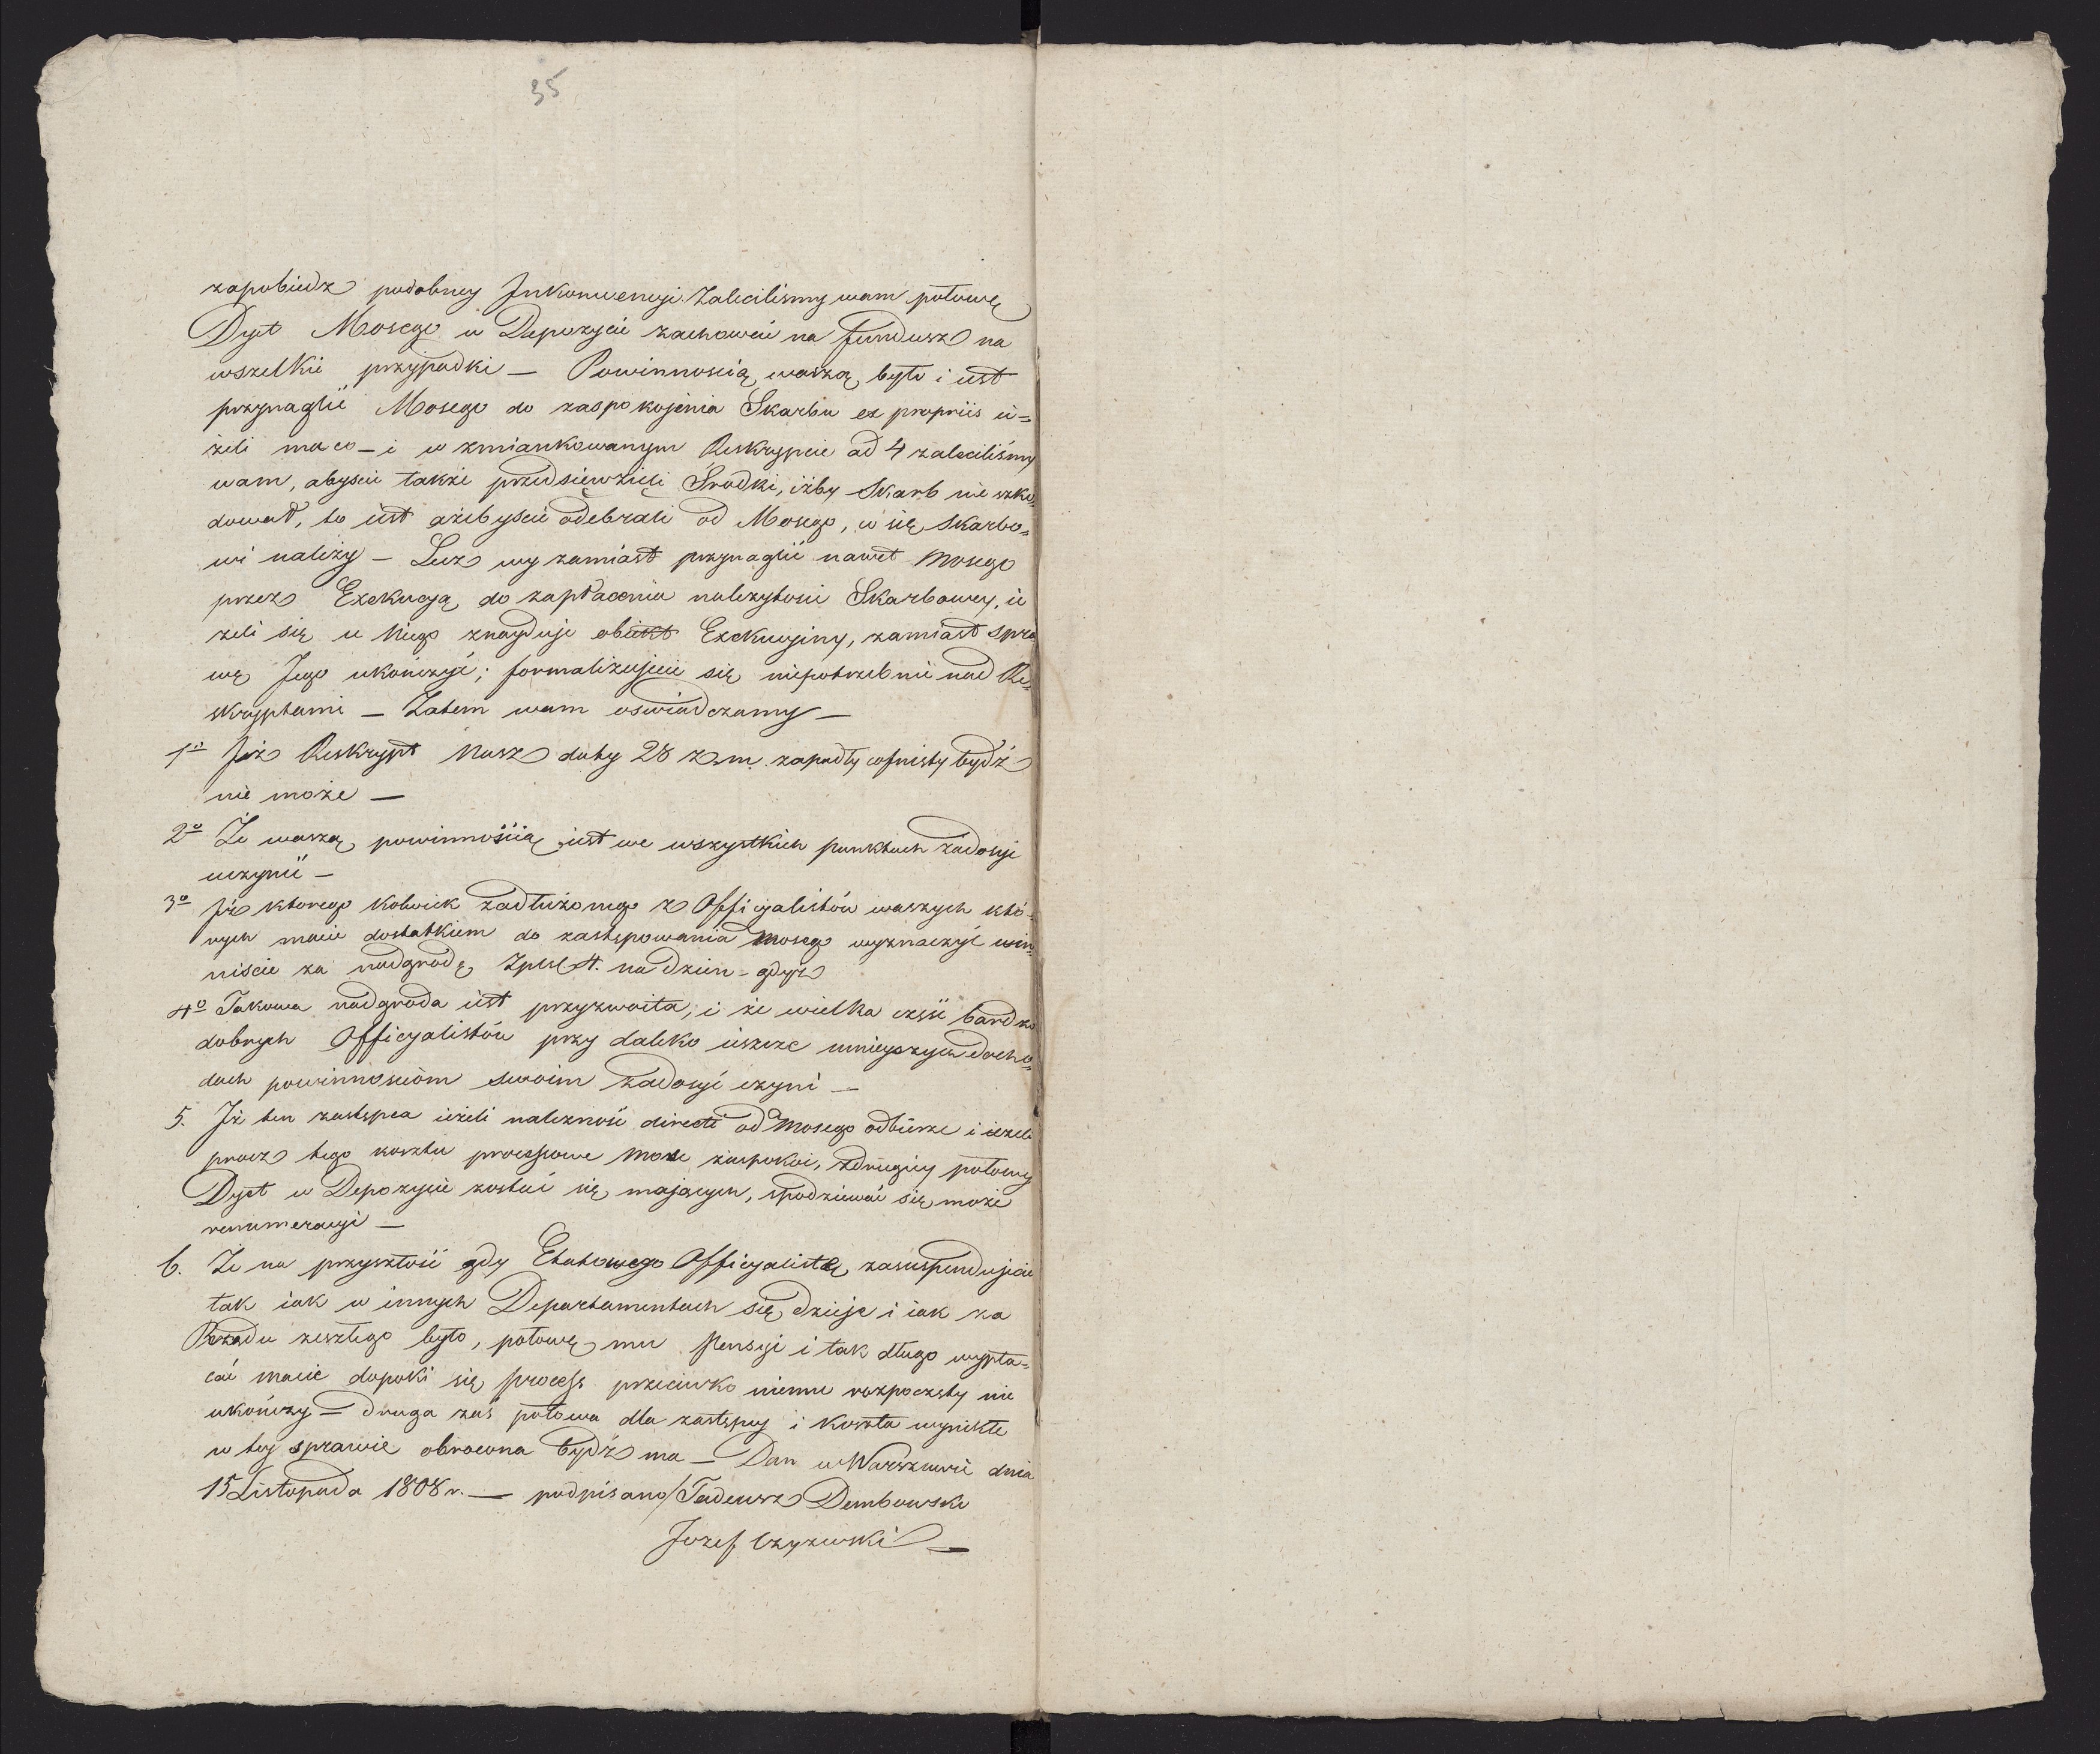 35
zapobiedz podobney Inkonwencyi Zaleciliśmy wam połowę
Dyet Mosego w Depozycie zachować na fundusz na
wszelkie przypadki — Powinnością waszą było i iest
przynaglić Mosego do zaspokojenia Skarbu ex propriis ie=
żeli ma co — i w zmiankowanym Reskrypcie ad 4 zaleciliśmy
wam, abyscie także przedsiewzieli Środki, iżby Skarb nie szko=
dował, to iest ażebyscie odebrali od Mosego, co się Skarbo=
wi należy — Lecz wy zamiast przynaglić nawet Mosego
przez Exekucyą do zapłacenia należytości Skarbowey, ie
żeli się u Niego znayduje obiekt Exekucyiny, zamiast spra
wę Jego ukończyć; formalizujecie się niepotrzebnie nad Re=
skryptami — Zatem wam oswiadczamy —
1o Iż Reskrypt Nasz daty 28 z. m. zapadły cofnięty bydź
nie może —
2o Że waszą powinnością iest we wszystkich punktach zadosyć
uczynić —
3o Iż ktorego kolwiek zadłużonego z Officyalistów waszych któ=
rych macie dostatkiem do zastępowania Mosego wyznaczyć win=
niscie za nadgrodę Zpol 4. na dzien — gdyż
4o Takowa nadgroda iest przyzwoita, i że wielka część bardzo
dobrych Officyalistów przy daleko ieszcze mnieyszych docho=
dach powinnosciom swoim zadosyć czyni —
5. Iż ten zastępca ieżeli należność directe od Mosego odbierze i ieżeli
procz tego koszta processowe Mose zaspokoi, z drugiey połowy
Dyet w Depozycie zostać się maiących, spodziewać się może
remuneracyi —
6. Że na przyszłość gdy Etatowego Officyalistę zasuspendujecie
tak iak w innych Departamentach się dzieje i iak za
Rządu zeszłego było, połowę mu Pensyi i tak długo wypła=
cać macie dopoki się process przeciwko niemu rozpoczęty nie
ukończy — druga zaś połowa dla zastępcy i koszta wynikłe
w tey sprawie obrocona bydź ma — Dan w Warszawie dnia
15 Listopada 1808 r. — podpisano / Tadeusz Dembowski
Jozef Czyzewski —